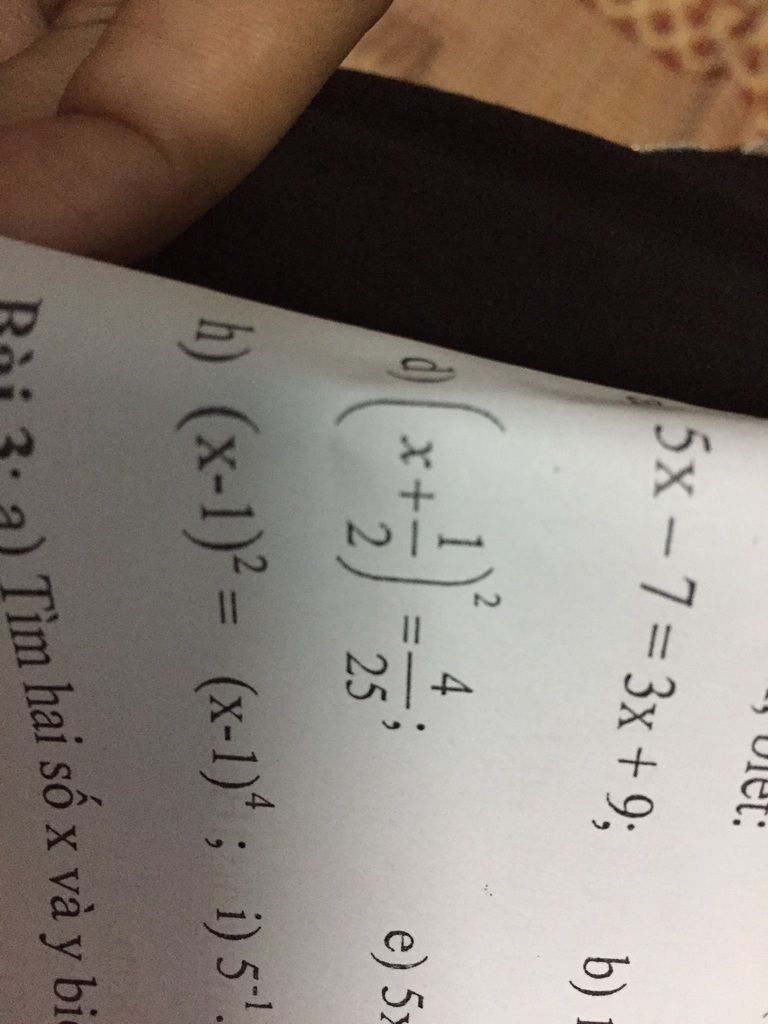 biết:
5x – 7 = 3x + 9; b)
d) (x + 1/2)² = 4/25; e) 5x
h) (x-1)² = (x-1)⁴ ; i) 5⁻¹.
Bài 3: a) Tìm hai số x và y